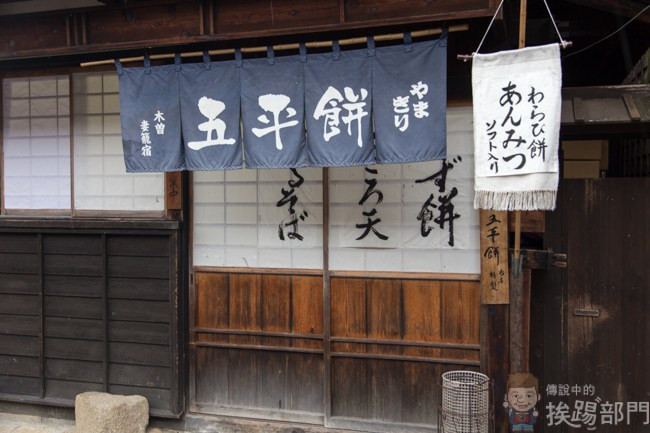 木曽
妻籠宿
五平餅
やまぎり
わらび餅
あんみつ
ソフト入り
るそば
ころ天
ず餅
五平餅
傳說中的
挨踢部門